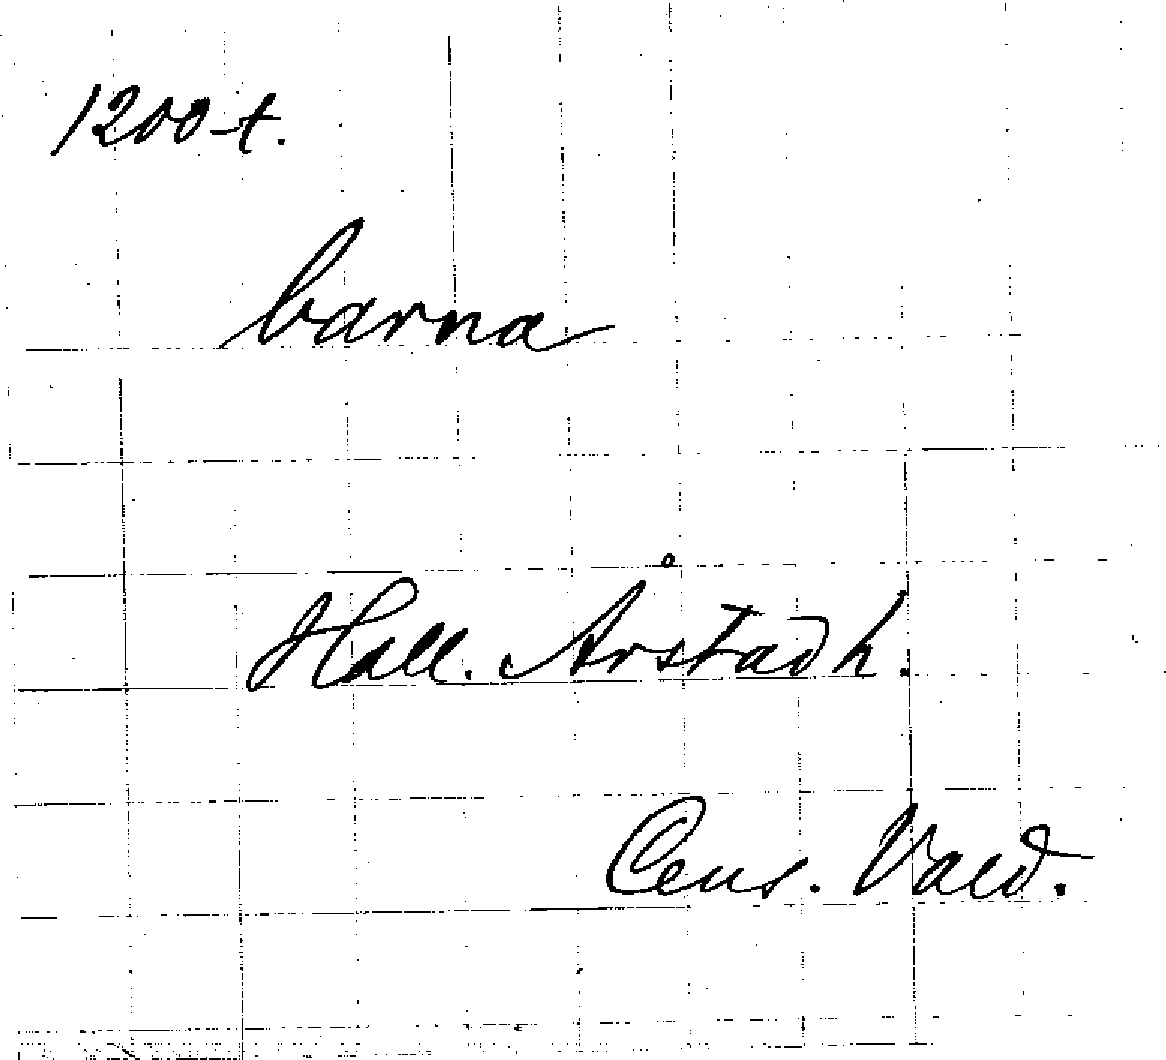 1200-t.
barna
Hall. Årstad h.
Cens. Vald.